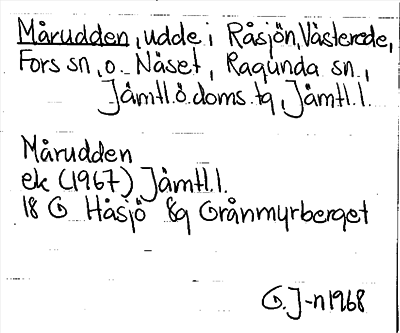 Mårudden, udde i Råsjön, Västerede,
Fors sn, o. Näset, Ragunda sn,
Jämtl.ö.doms.tg, Jämtl.l.
Mårudden
ek (1967) Jämtl.l.
18 G Håsjö 8g Grånmyrberget
G. J-n 1968